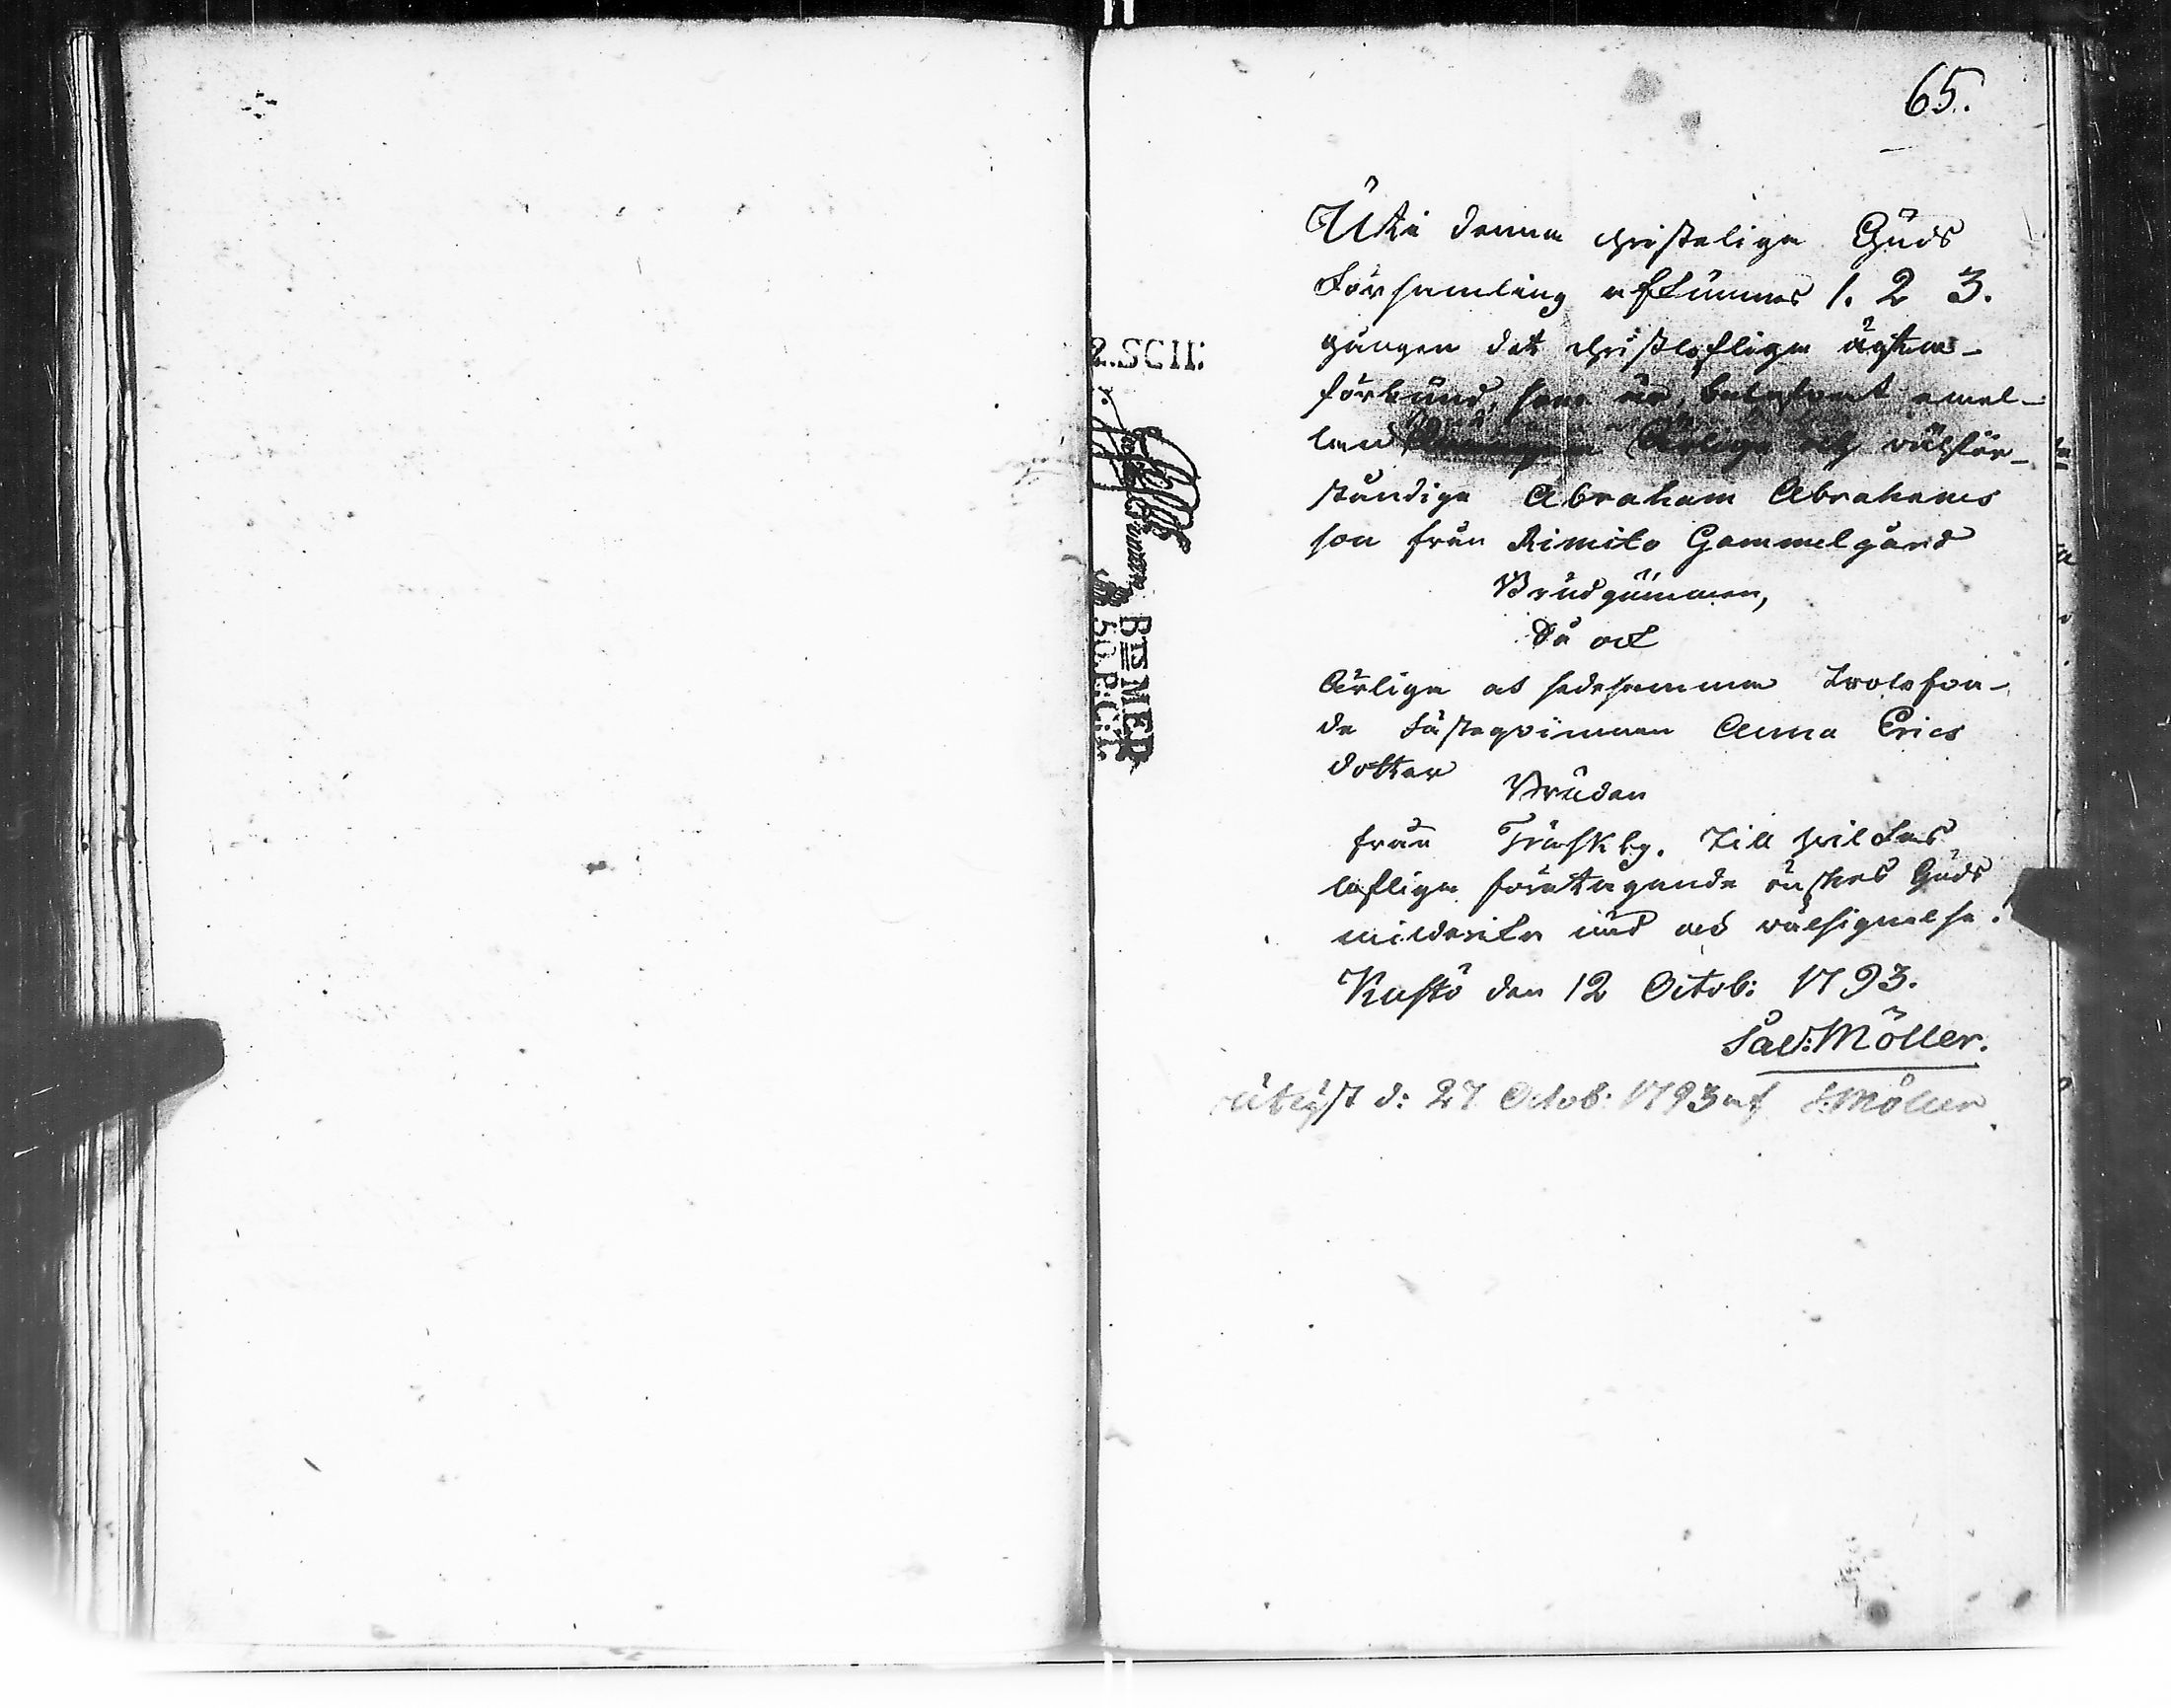 65.
Uti denna christeliga Guds
Församling aflünnes 1. 2 3.
gången det christlofliga ägten-
förbund, som är beleswat emel-
lan Ärlige och wälför-
ståndige Abraham Abrahams
son från Rimito Gammelgård
Brudgummen,
Så ock
Ärliga och sedesamma trolofwa-
de Fästeqvinnan Anna Erics
dotter
Bruden
från Träskby. Till hvilkas
lofliga företagande önskes Guds
milderika nåd och wälsignelse.
Kustö den 12 Octob: 1793.
Sal: Möller.
utlyst d: 27 Octob: 1793 af S: Möller
2.SCH:
BTS MER
50 P:C:T